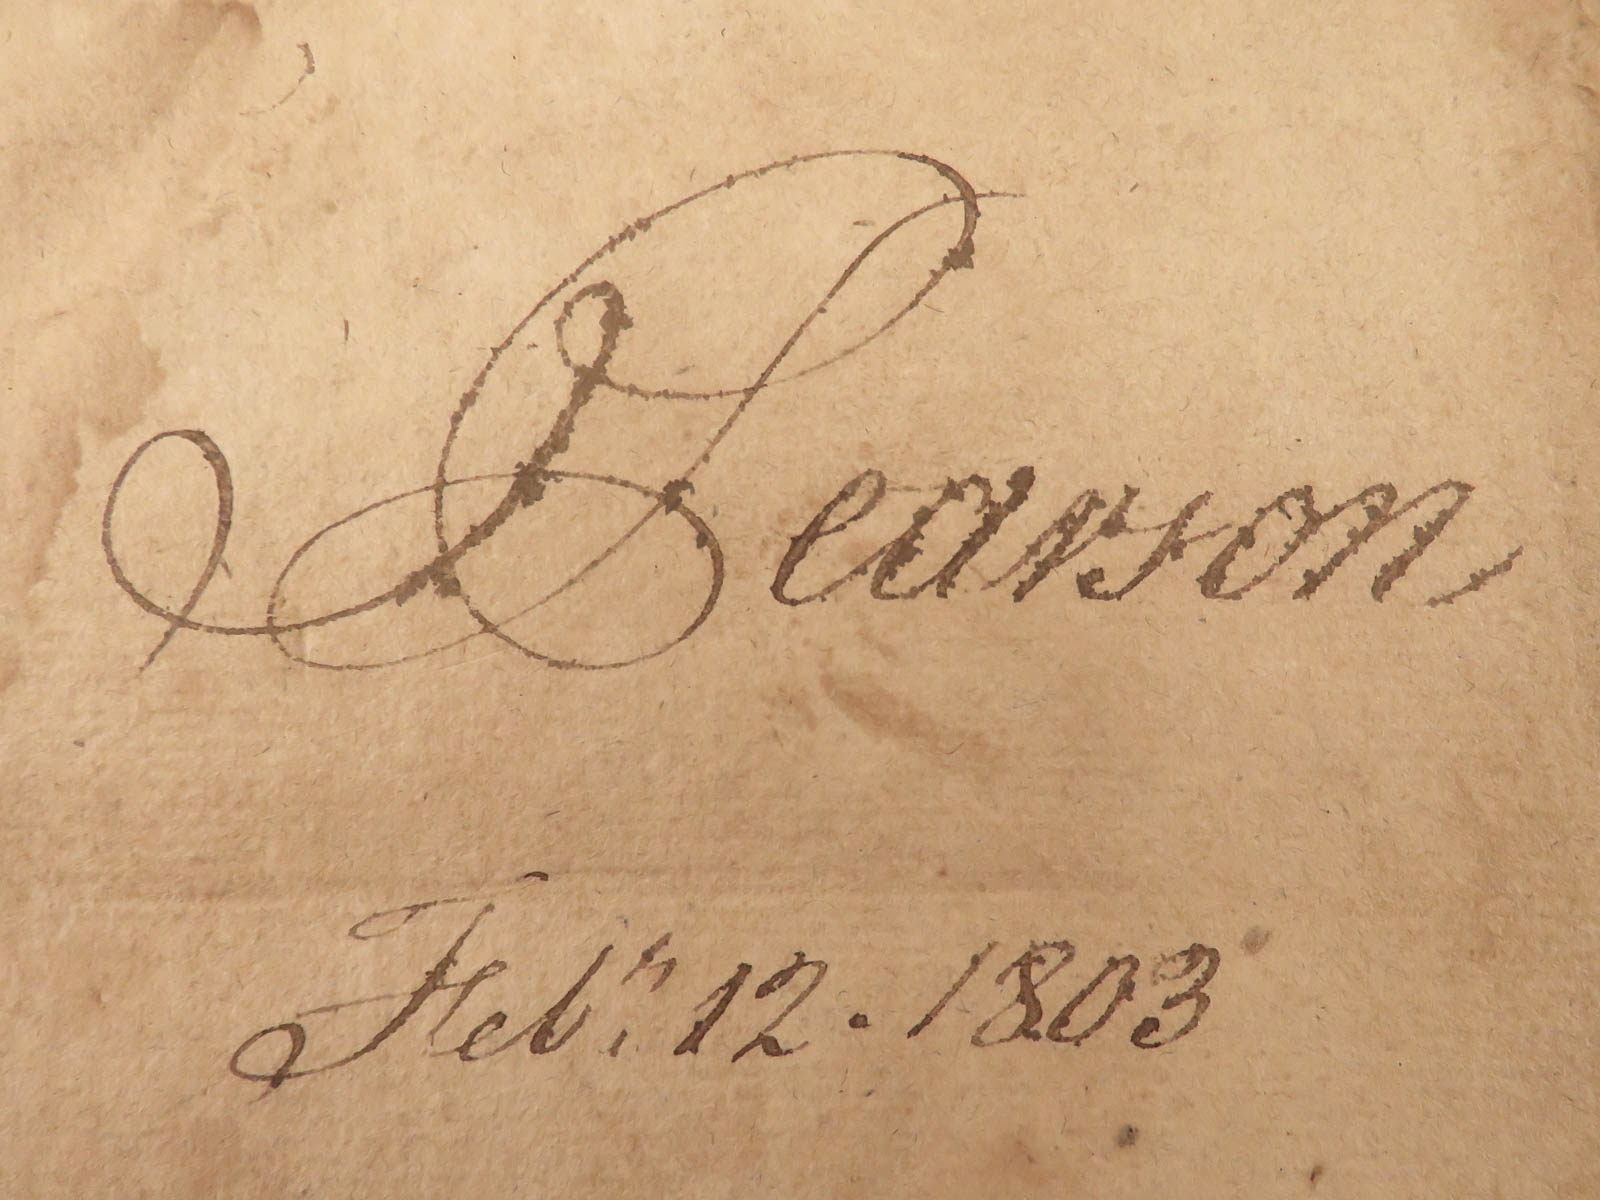 Pearson
Feb.r 12. 1803